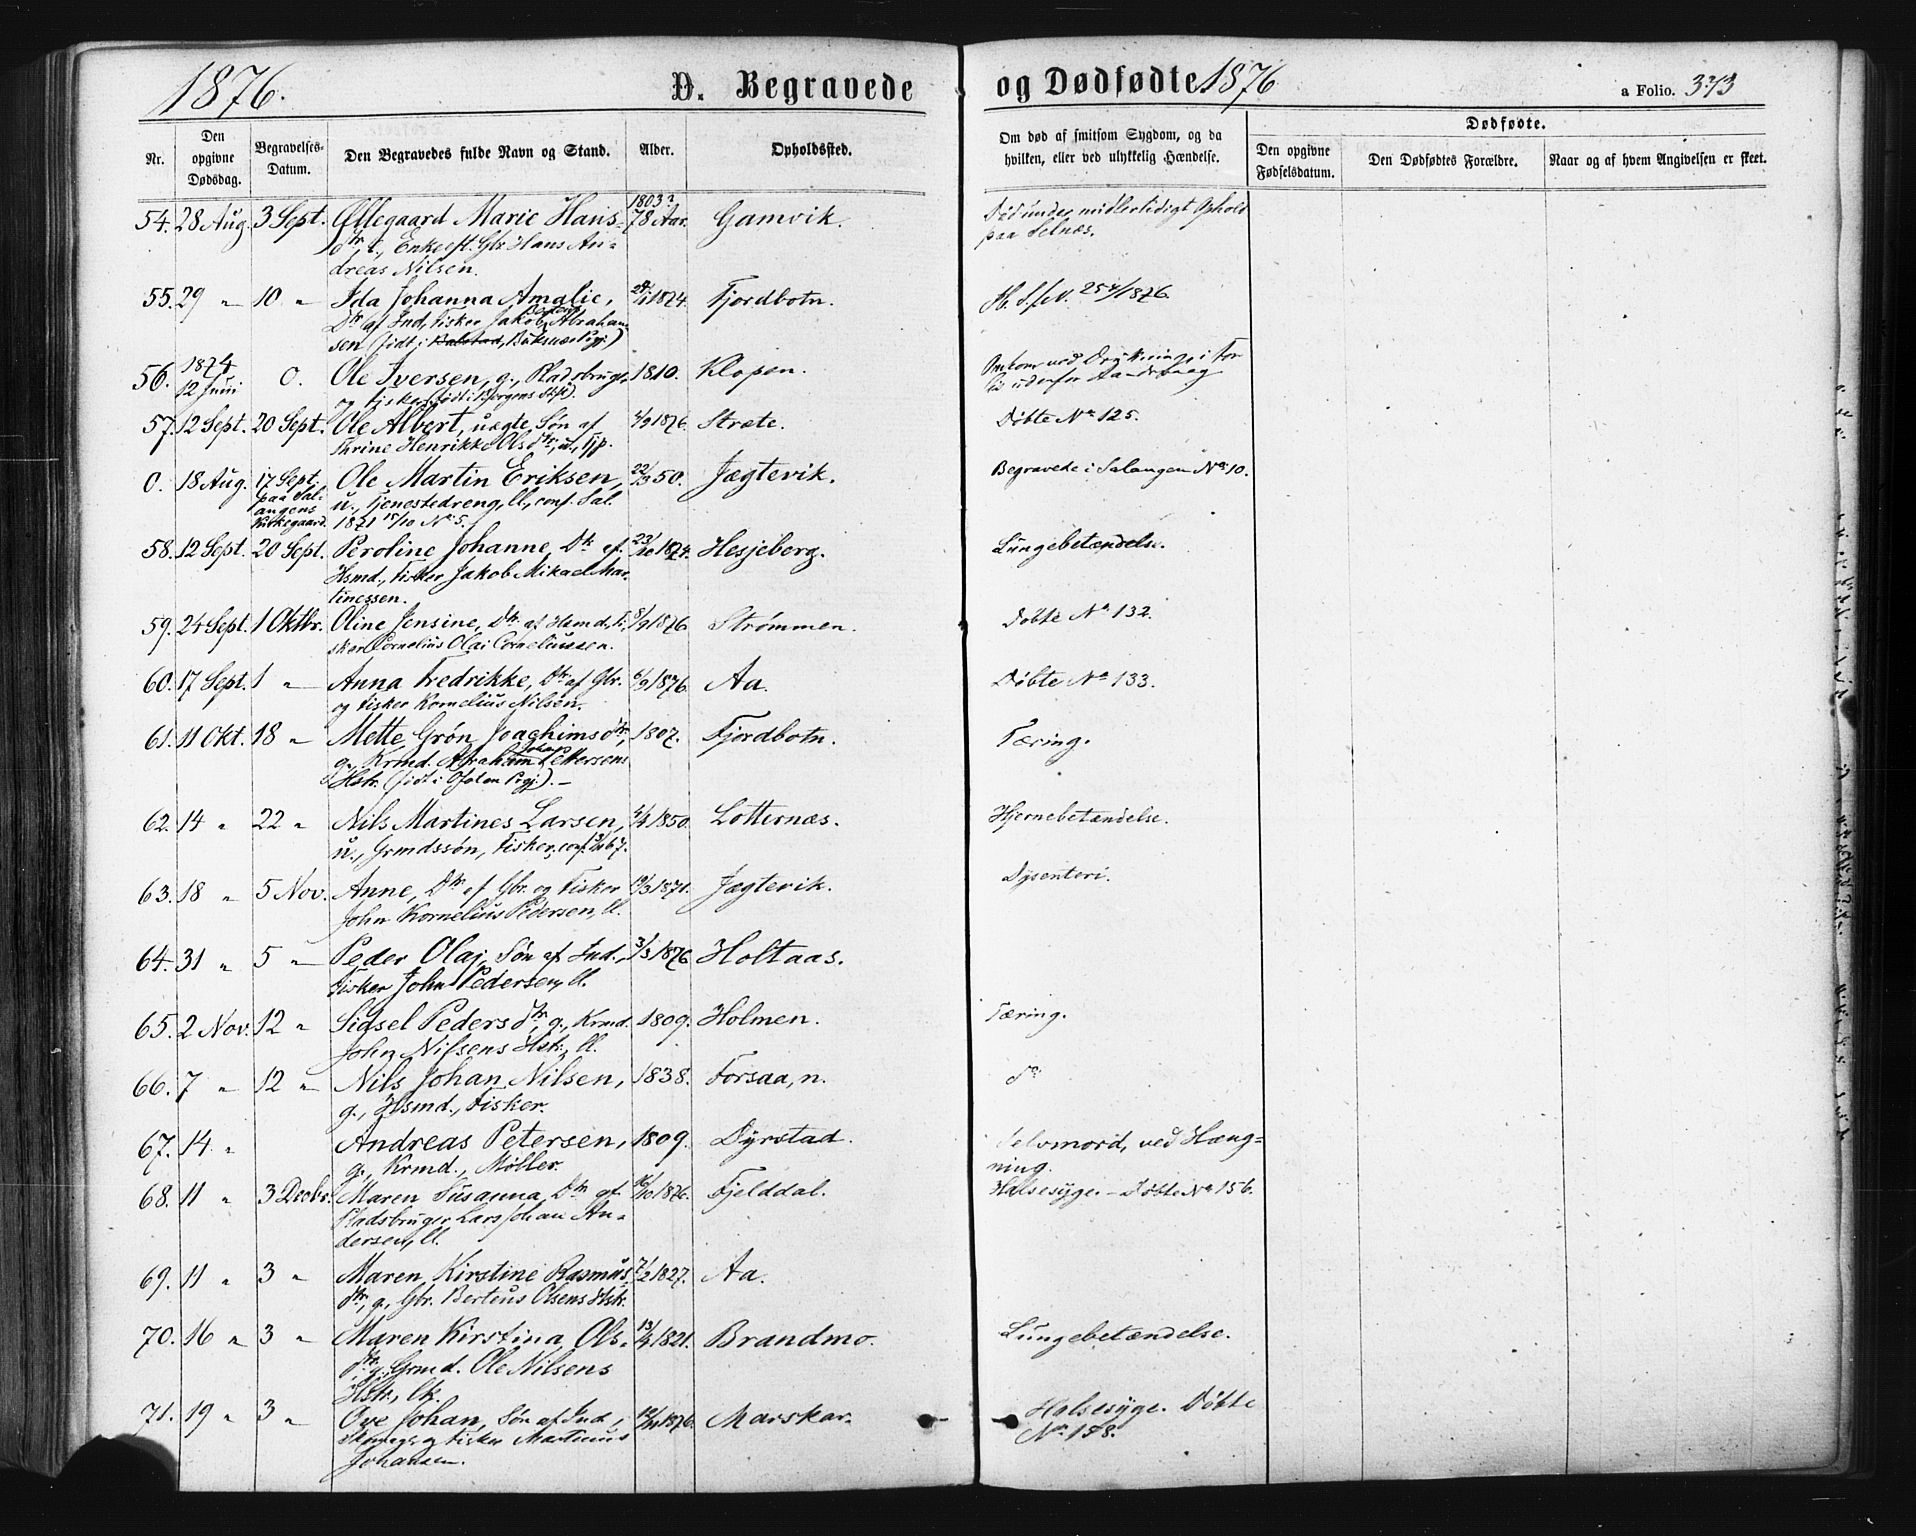 1876. D. Begravede og Dødfødte 1876 a Folio. 373
Nr. Den opgivne Dødsdag. Begravelses-Datum. Den Begravedes fulde Navn og Stand. Alder. Opholdssted. Om død af smitsom Sygdom, og da hvilken, eller ved ulykkelig Hændelse. Dødfødte.
Den opgivne Fødselsdatum. Den Dødfødtes Forældre. Naar og af hvem Angivelsen er skeet.
1803?
54. 28 Aug. 3 Sept. Øllegaard Marie Hans- 78 Aar. Gamvik. Død under midlertidigt Ophold
dtr, l., Enkeeft. Gbr Hans An- paa Selnæs.
dreas Nilsen.
55. 29 " 10 " Ida Johanna Amalie, 1874. Fjordbotn.
Dtr af Ind., Fisker Jakob Abraham-
sen (født i Balstad, Buksnæs Pgj.)
1874
56. 12 Juni 0. Ole Iversen, g., Pladsbruger 1810. Klopen. Omkom ved
og Fisker (født i Bergens Stift).
57. 12 Sept. 20 Sept. Ole Albert, uægte Søn af 4/9 1876. Stræte. Døbte No 125.
Thrine Henrikke Olsdtr, u., Tjp.
0. 18 Aug. 17 Sept. Ole Martin Eriksen, 22/9 50. Jægtevik. Begravede i Salangen No 10.
paa Sal- u., Tjenestedreng, ll., conf. Sal.
angens 1871 15/10 No 5.
Kirkegaard.
58. 12 Sept. 20 Sept. Peroline Johanne, Dtr af 23/10 1874. Hesjeberg. Lungebetændelse.
Hsmd., Fisker Jakob Mikael Mar-
tinessen.
59. 24 Sept. 1 Oktbr. Oline Jensine, Dtr af Hsmd., Fi- 8/9 1876. Strømmen. Døbte No 132.
sker Cornelius Olai Corneliussen.
60. 17 Sept. 1 " Anna Fredrikke, Dtr af Gbr. 6/9 1876. Aa. Døbte No 133.
og Fisker Kornelius Nilsen.
61. 11 Okt. 18 " Mette Grøn Joachimsdtr, 1807. Fjordbotn. Tæring.
g., Krmd. Abraham Johan Pettersens
Hstr. (født i Ofoten Pgj.). —
62. 14 " 22 " Nils Martines Larsen, 4/4 1850. Lotternæs. Hjernebetændelse.
u., Grmdssøn, Fisker, conf. 67.
63. 18 " 5 Nov. Anne, Dtr af Gbr. og Fisker 19/3 1871. Jægtevik. Dysenteri.
John Kornelius Pedersen, ll.
64. 31 " 5 " Peder Olaj, Søn af Ind., 3/3 1876. Holtaas.
Fisker John Pedersen, ll.
65. 2 Nov. 12 " Sidsel Pedersdtr, g., Krmd. 1809. Holmen. Tæring.
John Nilsens Hstr., ll.
66. 7 " 12 " Nils Johan Nilsen, 1838. Forsaa, n. do
g., Hsmd., Fisker.
67. 14 " Andreas Petersen, 1809. Dyrstad. Selvmord, ved Hæng-
g., Krmd., Møller. ning.
68. 11 " 3 Decbr. Maren Susanna, Dtr af 16/10 1876. Fjelddal. Halsesyge. – Døbte No 156.
Pladsbruger Lars Johan An-
dersen, ll.
69. 11 " 3 " Maren Kirstine Rasmus- 7/2 1827. Aa.
dtr, g., Gbr. Berteus Olsens Hstr.
70. 16 " 3 " Maren Kirstina Ols- 13/4 1821. Brandmo. Lungebetændelse.
dtr, g., Grmd. Ole Nilsens
Hstr., lk.
71. 19 " 3 " Ove Johan, Søn af Ind., 1876. Marskar. Halsesyge. Døbte
og Fisker Martinus No 158.
Johansen.